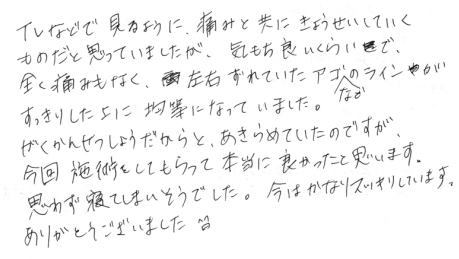 TVなどで見るように、痛みと共にきょうせいしていく
ものだと思っていましたが、気もち良いくらいで、
全く痛みもなく、左右ずれていたアゴのラインなどが
すっきりした上に均等になっていました。
がくかんせつしょうだからと、あきらめていたのですが、
今回施術をしてもらって本当に良かったと思います。
思わず寝てしまいそうでした。今はかなりスッキリしています。
ありがとうございました